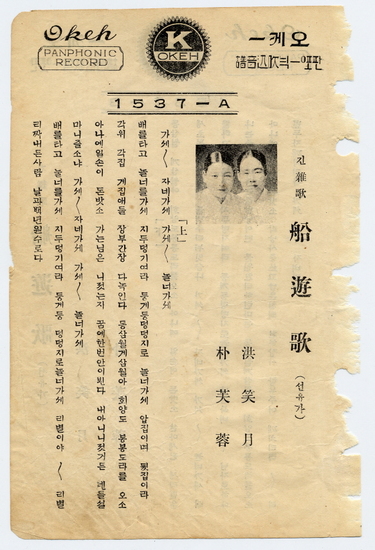 Okeh
PANPHONIC
RECORD
K
OKEH
오케ー
1537ーA
긴雜歌
船遊歌
(선유가)
洪笑月
朴芙蓉
「上」
가세〱 자네가세 가세〱 놀너가세
배를타고 놀너를가세 지두덩기여라 둥게둥덩덩지로 놀너가세 압집이며 뒷집이라
각위 각집 계집애들 장부간장 다녹인다 동삼월계삼월아 회양도 봉봉도라를 오소
아나에일손이 돈밧소 가는님은 니젓는지 꿈에한번안이뵌다 내아니니젓거든 젠들설
마니즐소냐 가세〱 자네가세 가세〱 놀너가세
배를타고 놀너를가세 지두덩기여라 둥게둥 덩덩지로놀너가세 리별이야 〱 리별
리짜내든사람 날과백년원수로다